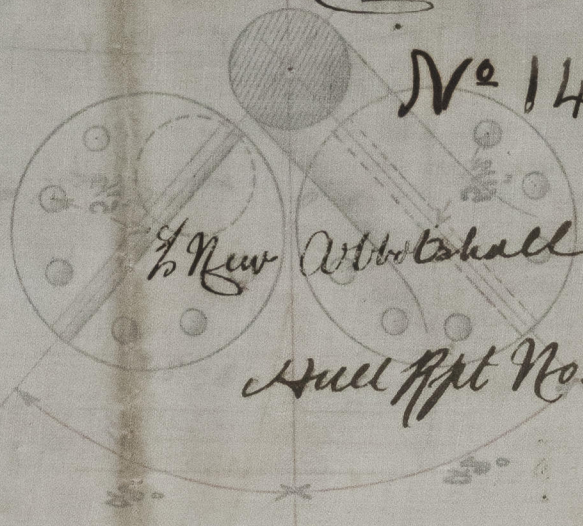 No 14
S New Abbotshall
Hull Rpt No.